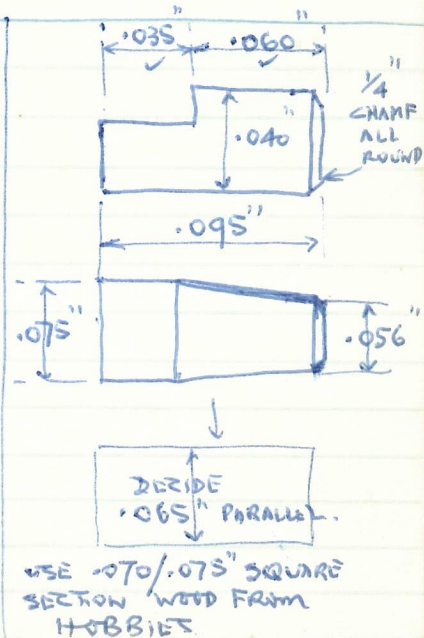 .035" .060"
1/4"
CHAMF
ALL
ROUND
.040"
.095"
.075"
.056"
DECIDE
.065" PARALLEL.
USE .070/.075" SQUARE
SECTION WOOD FROM
HOBBIES